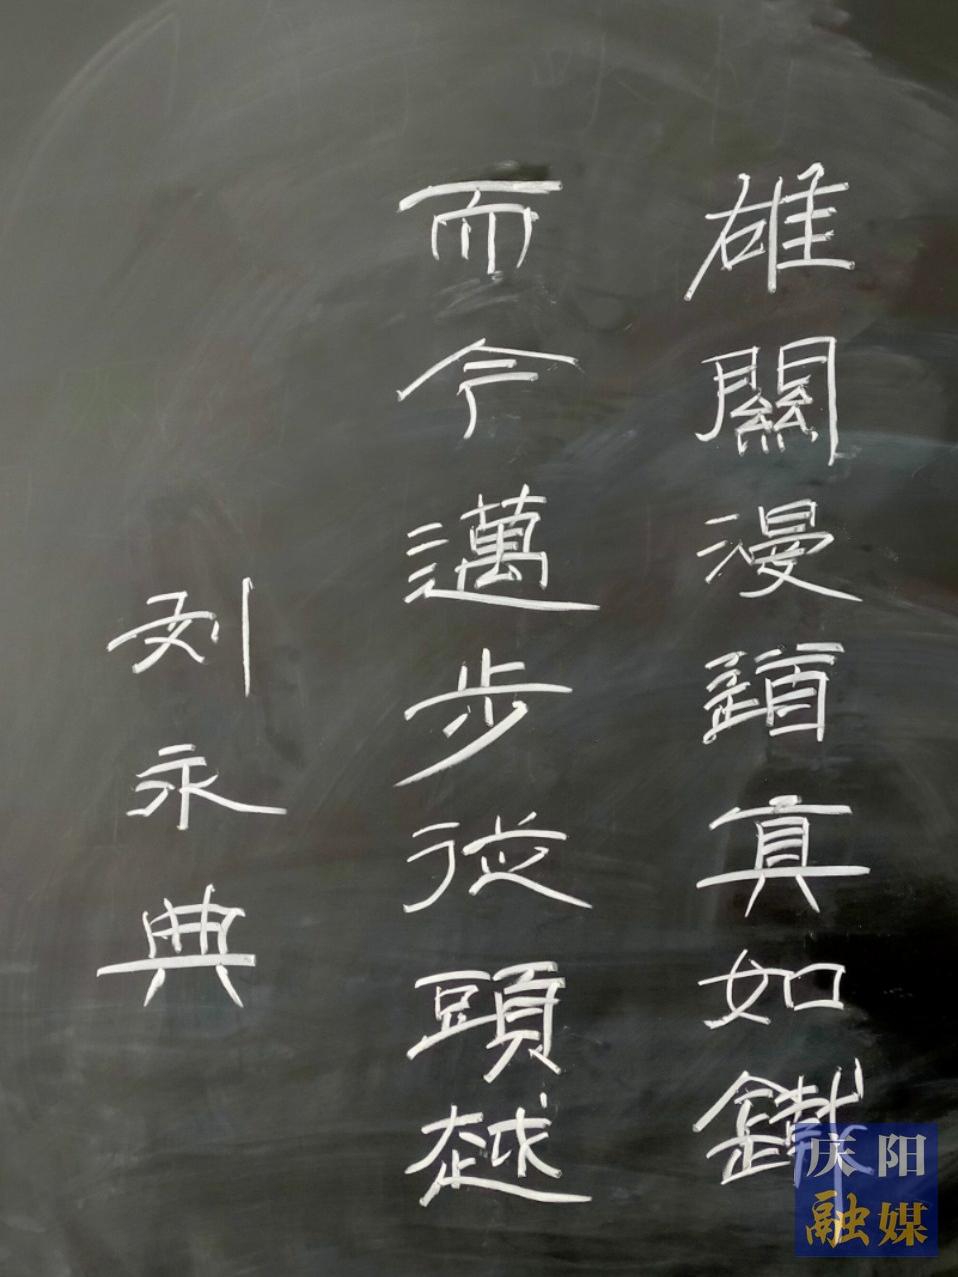 雄關漫道真如鐵
而今邁步從頭越
刘永典
庆阳
融媒